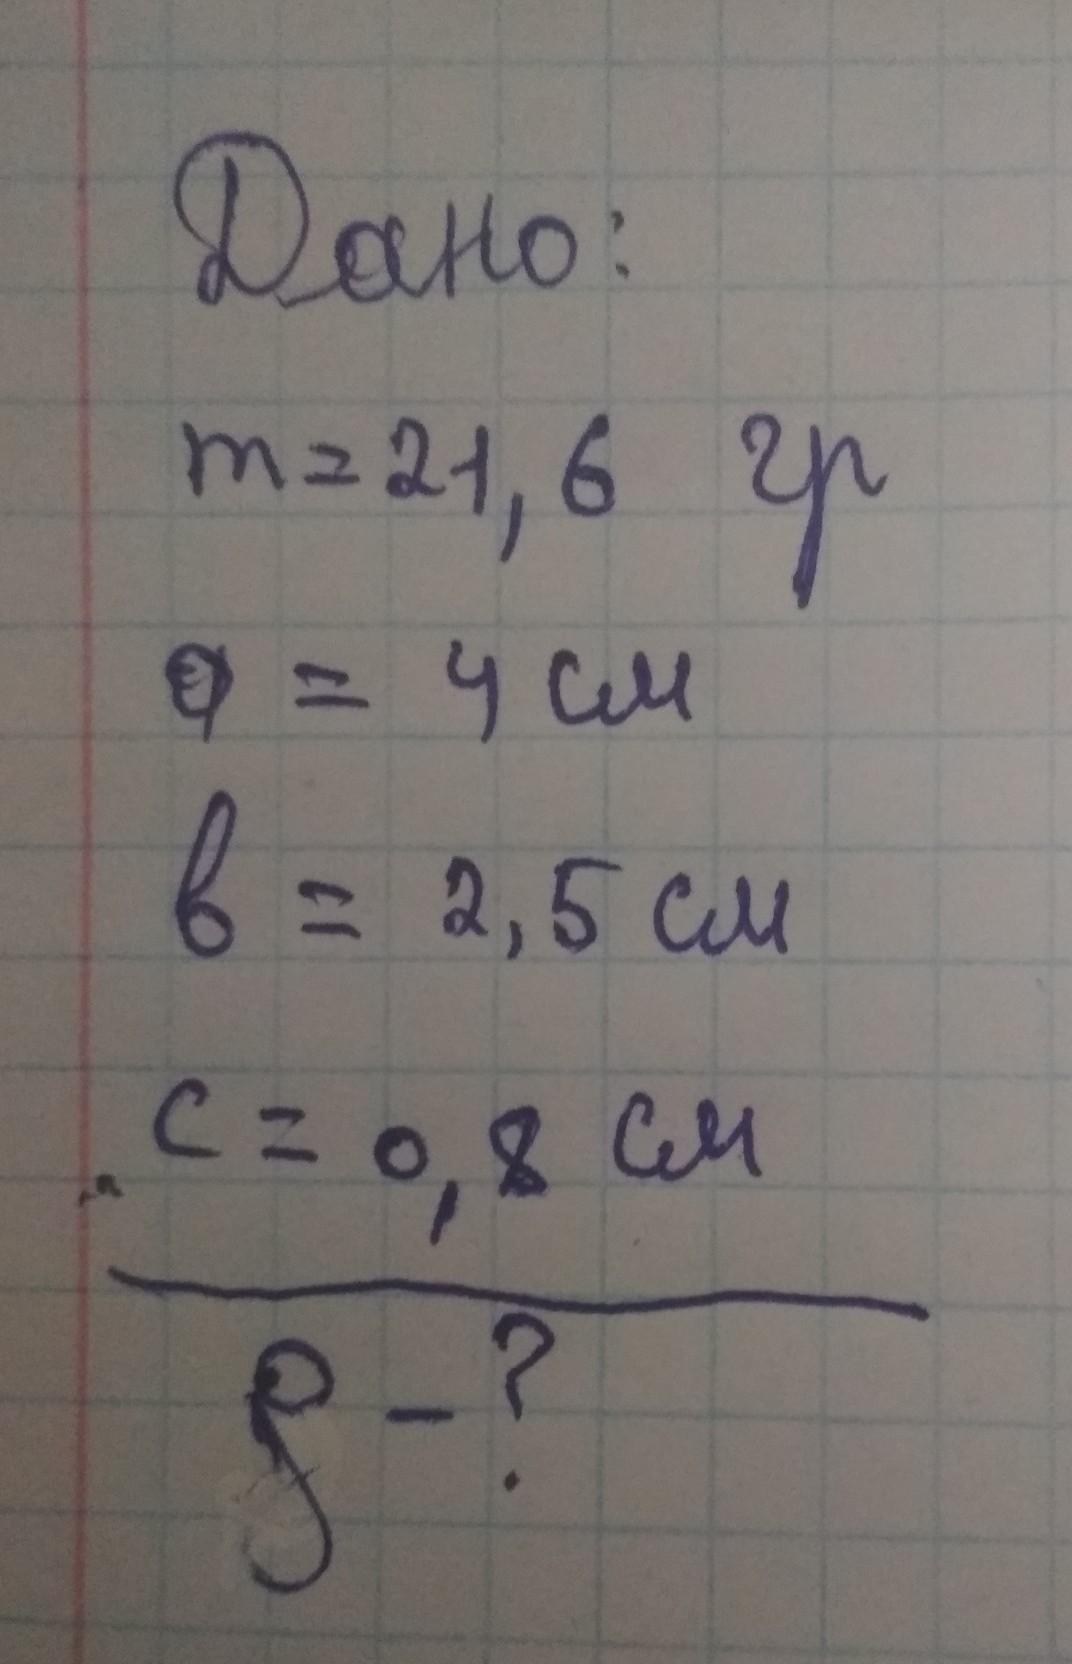 Дано:
m = 21,6 гр
a = 4 см
в = 2,5 см
c = 0,8 см
ρ - ?